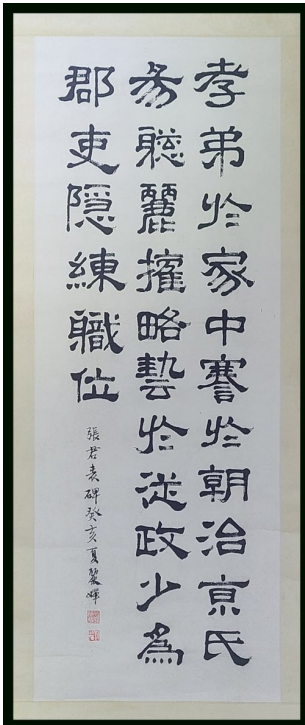 孝弟於家中謇於朝治京氏
易聰麗權略藝於從政少為
郡吏隱練職位
張君表碑癸亥夏麗